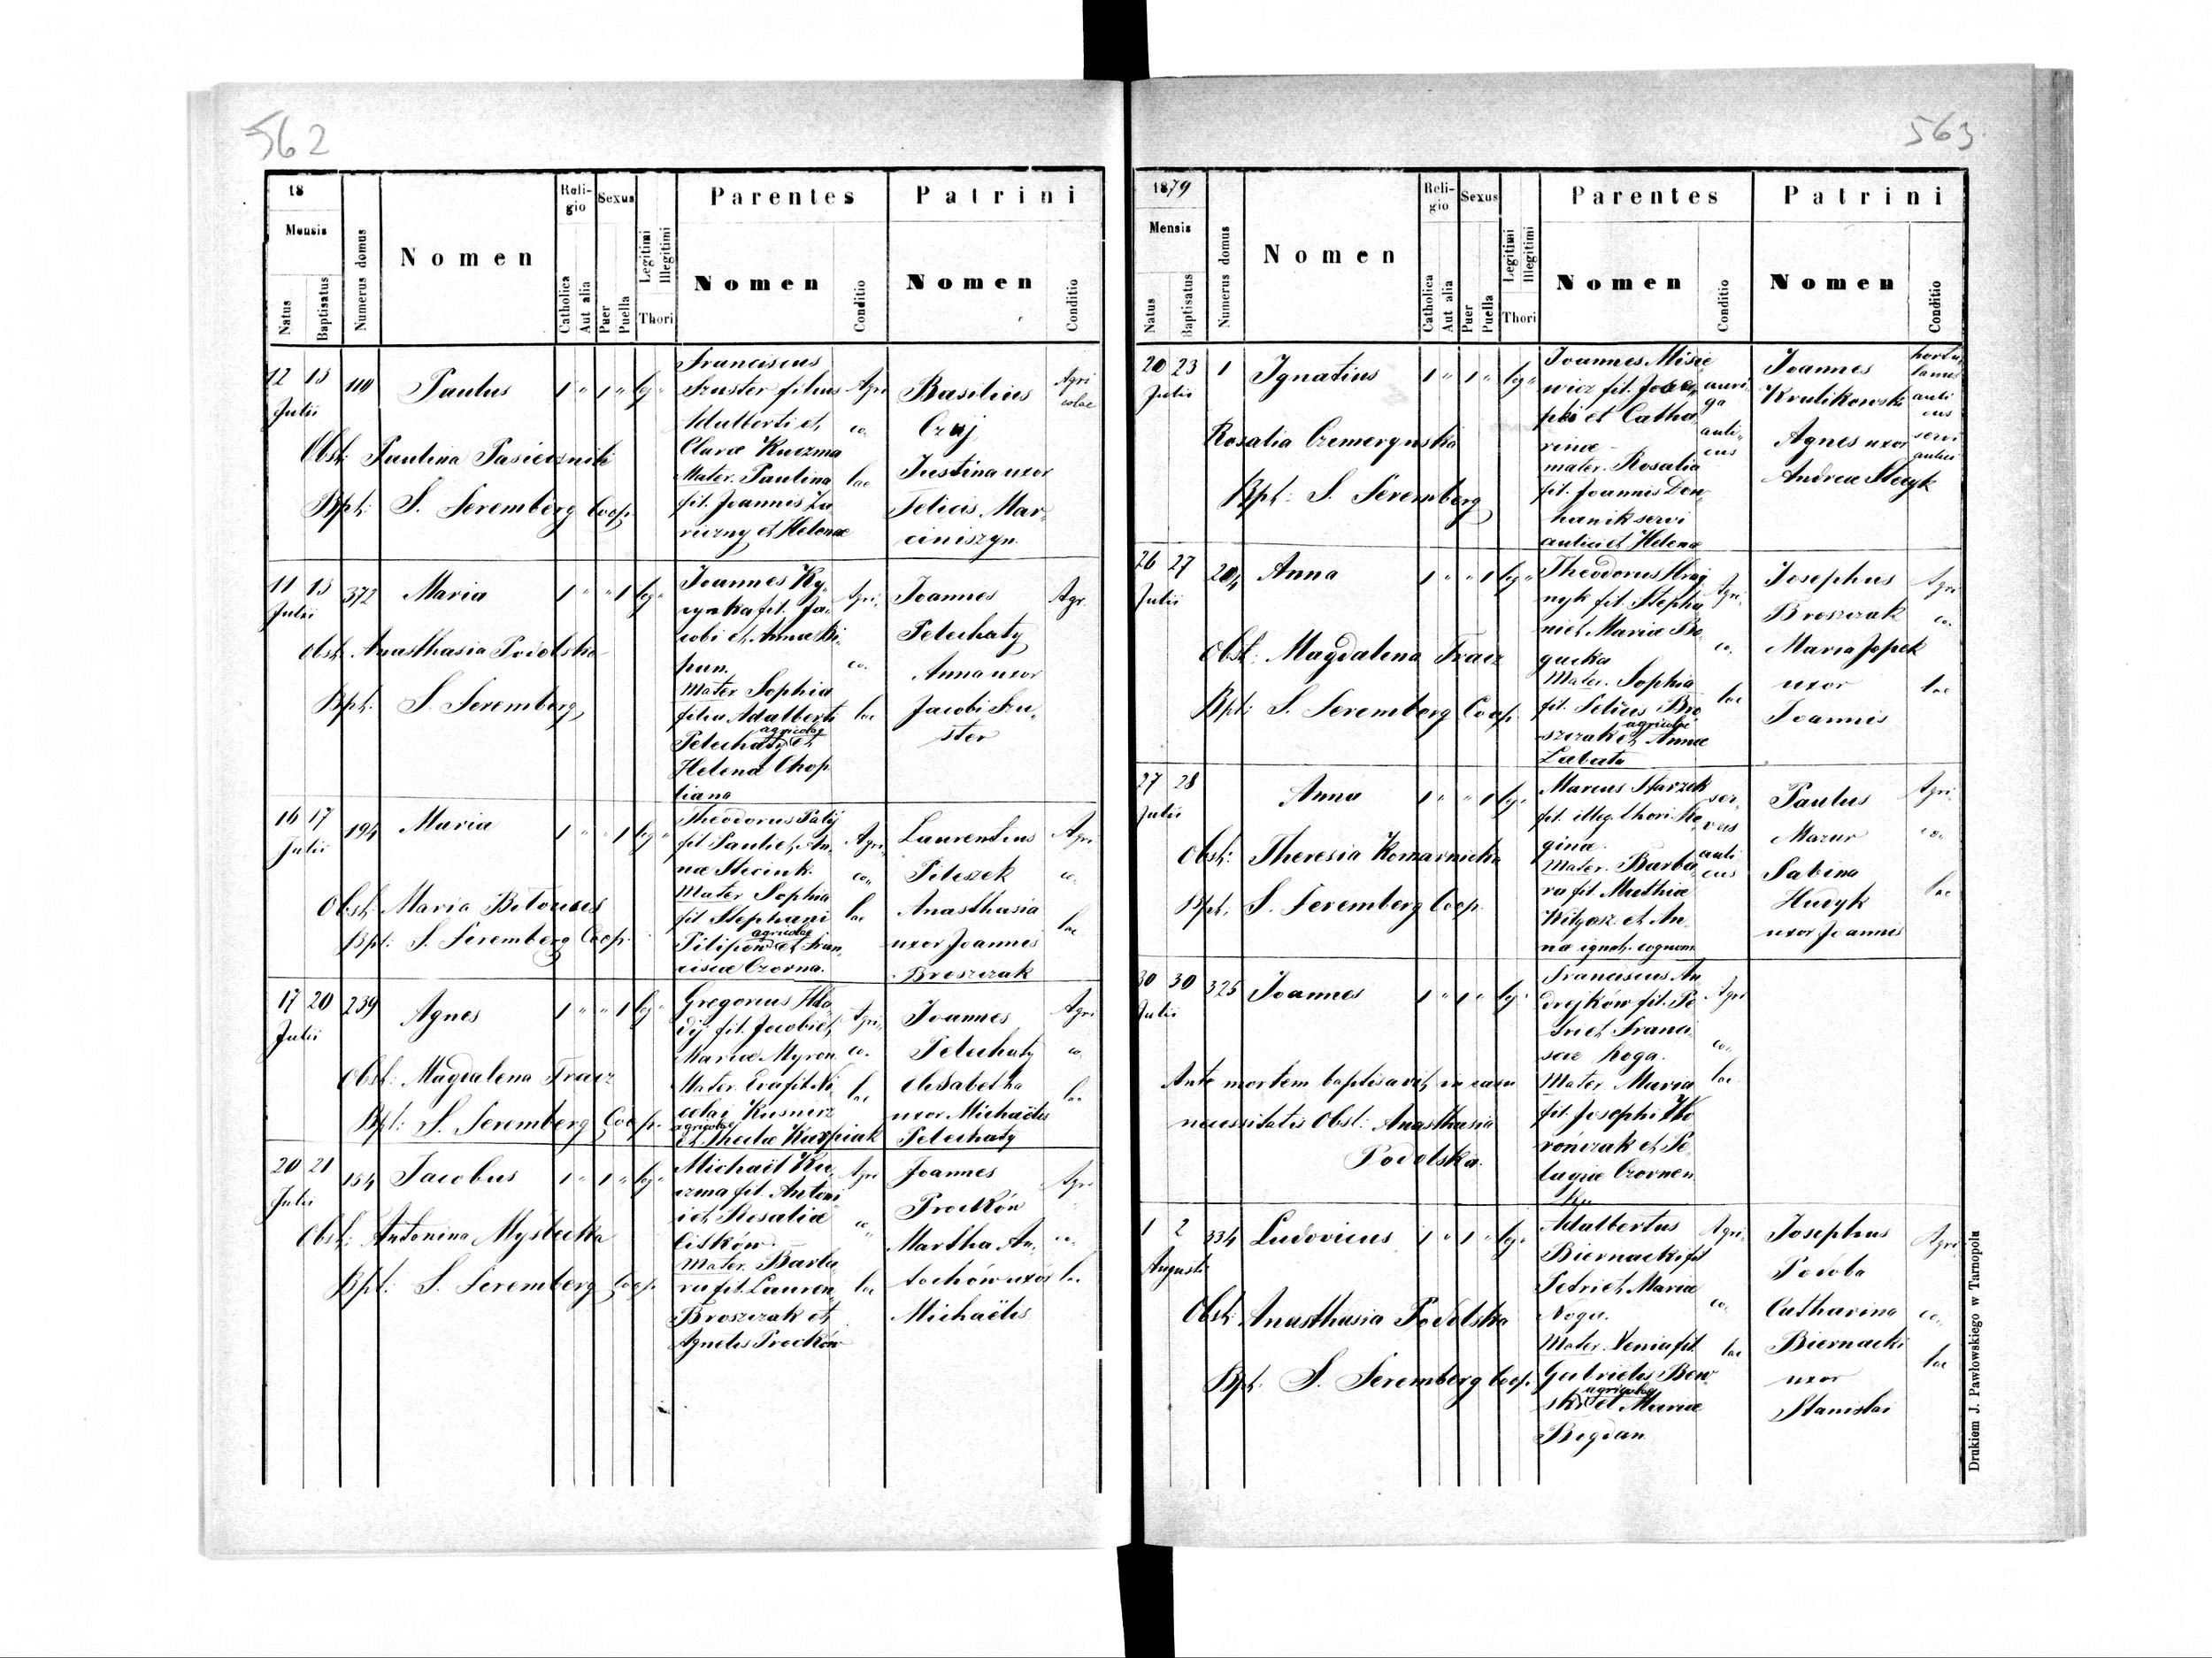 562
18
Mensis
Natus
Baptisatus
Numerus domus
Nomen
Religio
Catholica
Aut alia
Sexus
Puer
Puella
Legitimi
Illegitimi
Thori
Parentes
Nomen
Conditio
Patrini
Nomen
Conditio
12 13 110 Paulus 1 " 1 " leg "
Julii
Obst: Paulina Pasiecznik
Bpt: S. Seremberg Coop.
Franciscus
Szuster filius
Adalberti et
Clarae Kuczma
Mater. Paulina
fil. Joannis
et Helenae
Agri
co
lae
Basilius
Czuj
Justina uxor
Felicis Mar
ciniszyn.
Agri
colae
11 13 372 Maria 1 " " 1 leg "
Julii
Obst: Anasthasia Podolska
Bpt: S. Seremberg
Joannes Ky
fil. Ja
cobi et Annae Bi
hun.
Mater Sophia
filia Adalberti
Pelechaty agricolae et
Helena Chop
liana
Agri
co.
lae
Joannes
Pelechaty
Anna uxor
Jacobi Szu
ster
Agr.
16 17 194 Maria 1 " " 1 leg "
Julii
Obst: Maria
Bpt: S. Seremberg Coop.
Theodorus Palij
fil Pauli et An
nae Stecink.
Mater Sophia
fil Stephani
Pilipow agricolae et Fran
ciscae Czorna.
Agri
co
lae
Laurentius
Pileszek
Anasthasia
uxor Joannis
Broszczak
Agri
co.
lae
17 20 239 Agnes 1 " " 1 leg "
Julii
Obst: Magdalena Tracz
Bpt: S. Seremberg Coop.
Gregorius Hla
dij fil. Jacobi et
Mariae Myron.
Mater. Eva fil. Ni
colai Kusnierz
agricolae
et Theclae Karpiak
Agri
co.
lae
Joannes
Pelechaty
Elisabetha
uxor Michaëlis
Pelechaty
Agri
co.
lae
20 21 154 Jacobus 1 " 1 " leg "
Julii
Obst: Antonina Myslicka
Bpt: S. Seremberg Coop.
Michaël Ku
czma fil. Antoni
i et Rosaliae
Lisków.
Mater. Barba
ra fil. Lauren
Broszczak et
Agnetis Proćków
Agri
co
lae
Joannes
Proćków
Martha An
tochów uxor
Michaëlis
Agri
co.
lae
563.
1879
Mensis
Natus
Baptisatus
Numerus domus
Nomen
Religio
Catholica
Aut alia
Sexus
Puer
Puella
Legitimi
Illegitimi
Thori
Parentes
Nomen
Conditio
Patrini
Nomen
Conditio
20 23 1 Ignatius 1 " 1 " leg "
Julii
Rosalia Czemerynska
Bpt: S. Seremberg
Joannes Misie
wicz fil. Jose
phi et Catha
rinae
mater. Rosalia
fil. Joannis Dow
hanik servi
aulici et Helena
auri
ga
auli
cus
Joannes
Krulikowski
Agnes uxor
Andreae Stecyk
hortu
lanus
auli
cus
servi
aulici
26 27 204 Anna 1 " " 1 leg "
Julii
Obst: Magdalena Tracz
Bpt: S. Seremberg Coop
Theodorus Hryj
nyk fil. Stepha
ni et Mariae Bo
gucka
Mater. Sophia
fil. Felicis Bro
szczak agricolae et Annae
Labata
Agri
co.
lae
Josephus
Broszczak
Maria Jopek
uxor
Joannis
Agri
co.
lae
27 28 Anna 1 " " 1 leg "
Julii
Obst: Theresia Komarnicka
Bpt. S. Seremberg Coop.
Marcus Starzek
fil. illeg. thori Re
ginae.
Mater. Barba
ra fil. Mathiae
et An
na ignot. cognom
ser
vus
auli
cus
Paulus
Mazur
Sabina
Hudyk
uxor Joannis
Agri
co.
lae
30 30 325 Joannes 1 " 1 " leg.
Julii
Ante mortem baptisavit in casu
necessitatis Obst: Anasthasia
Podolska.
Franciscus An
drejkow fil. Pe
tri et Franci
scae Koga.
Mater Maria
fil. Josephi Wo
rończak et Pe
lagiae Czornen
ka
Agri
co.
lae
1 2 334 Ludovicus 1 " 1 " leg "
Augusti
Obst: Anasthasia Podolska
Bpt. S. Seremberg Coop.
Adalbertus
Biernacki fil
Petri et Mariae
Noga.
Mater. Xenia fil.
Gabrielis Bow
ski agricolae et Mariae
Bogdan
Agri
co.
lae
Josephus
Podoba
Catharina
Biernacki
uxor
Stanislai
Agri
co.
lae
Drukiem J. Pawłowskiego w Tarnopolu